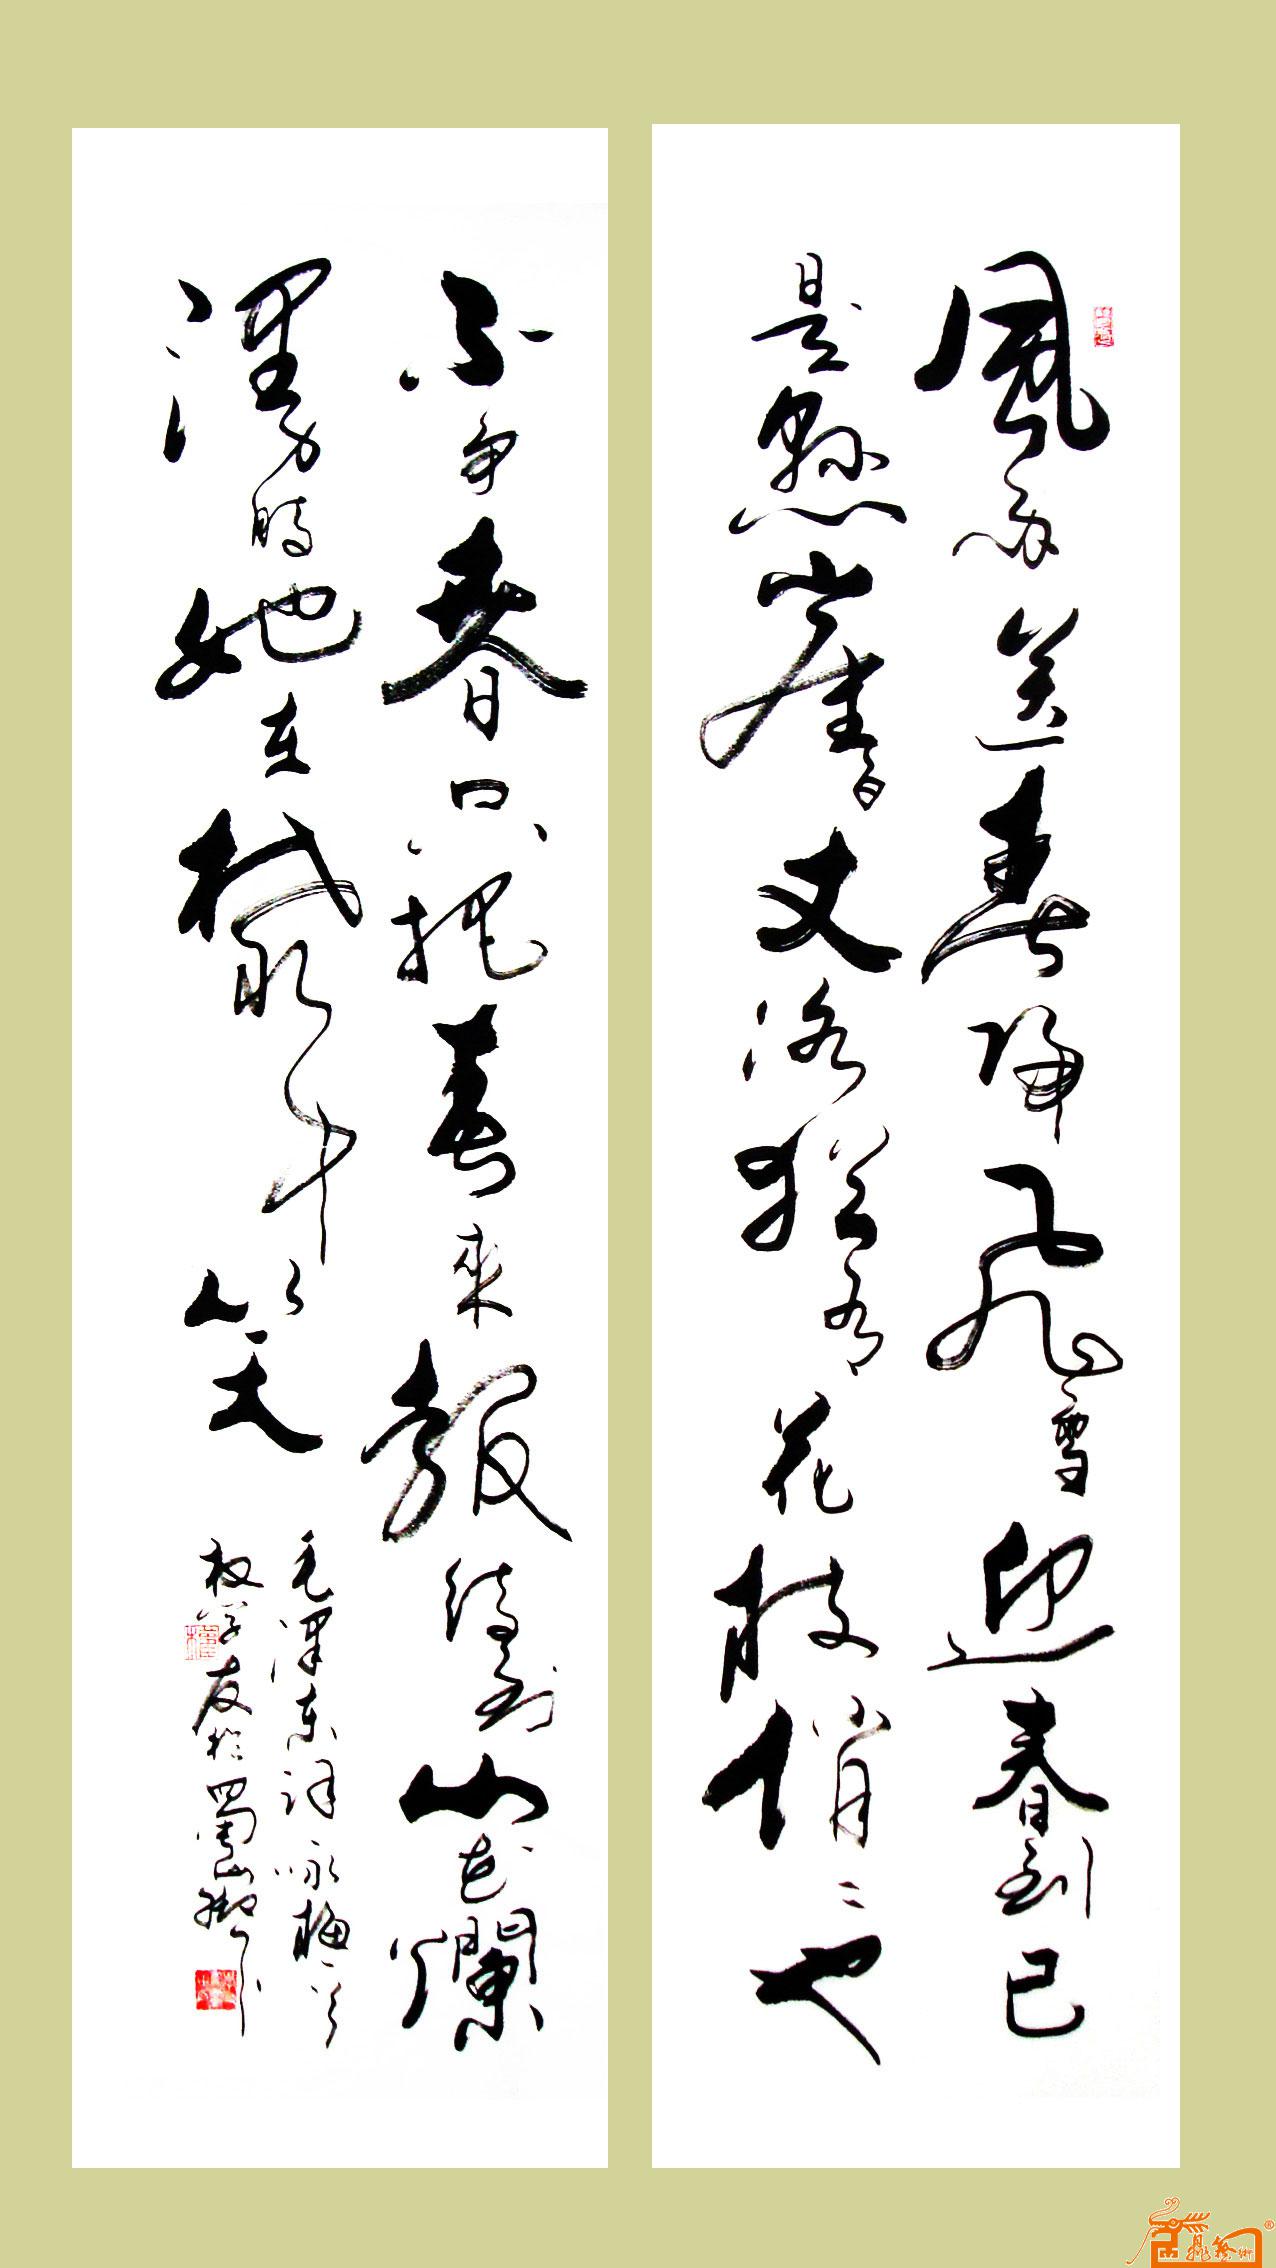 風雨送春歸飛雪迎春到已
是懸崖百丈冰猶有花枝俏〻也
不争春只把春來報待到山花爛
漫時她在叢中笑
毛澤東詞咏梅一首
权学友於蜀山